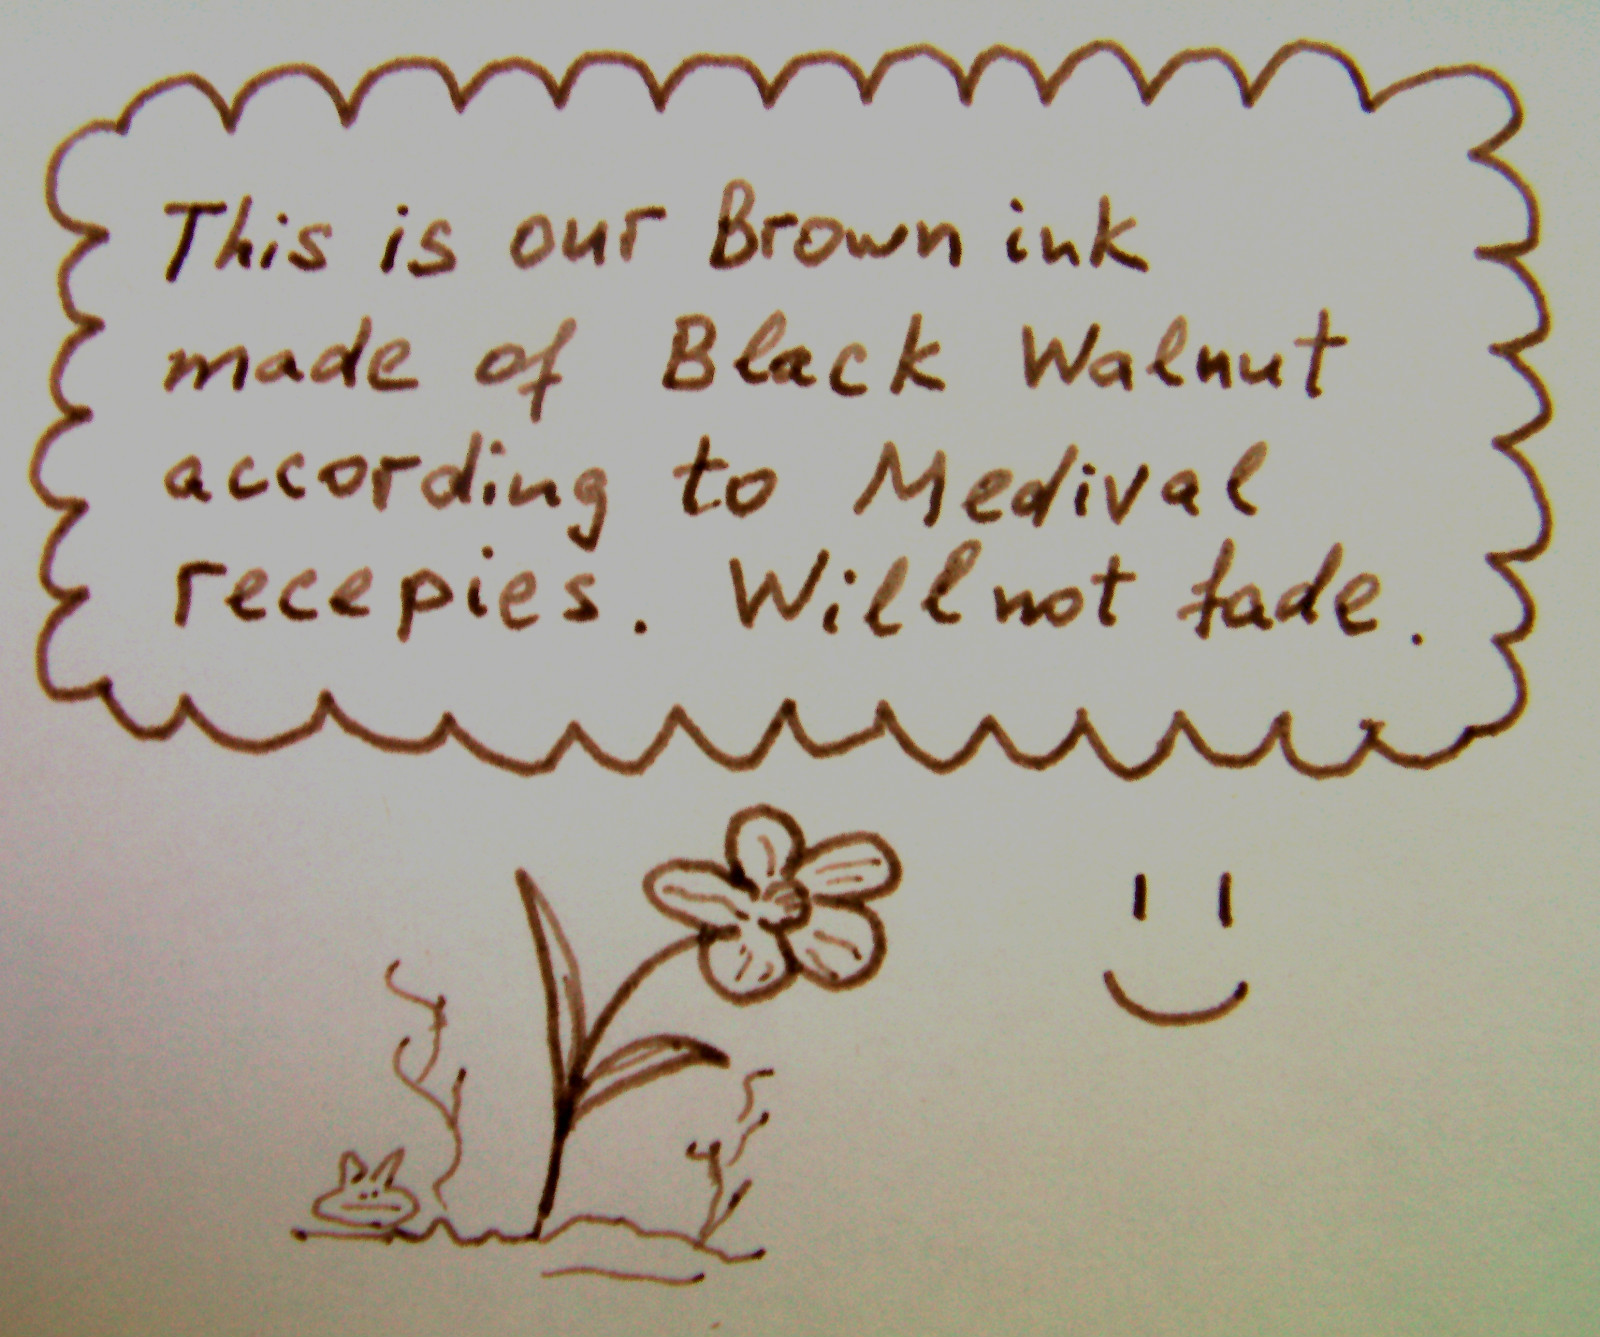 This is our Brown ink
made of Black Walnut
according to Medival
recepies. Will not fade.